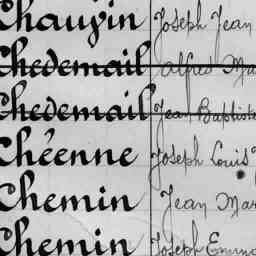 Chauvin Joseph Jean
Chedemail Alfred Ma
Chedemail Jean Baptiste
Chéenne Joseph Louis
Chemin Jean Mar
Chemin Joseph Emman